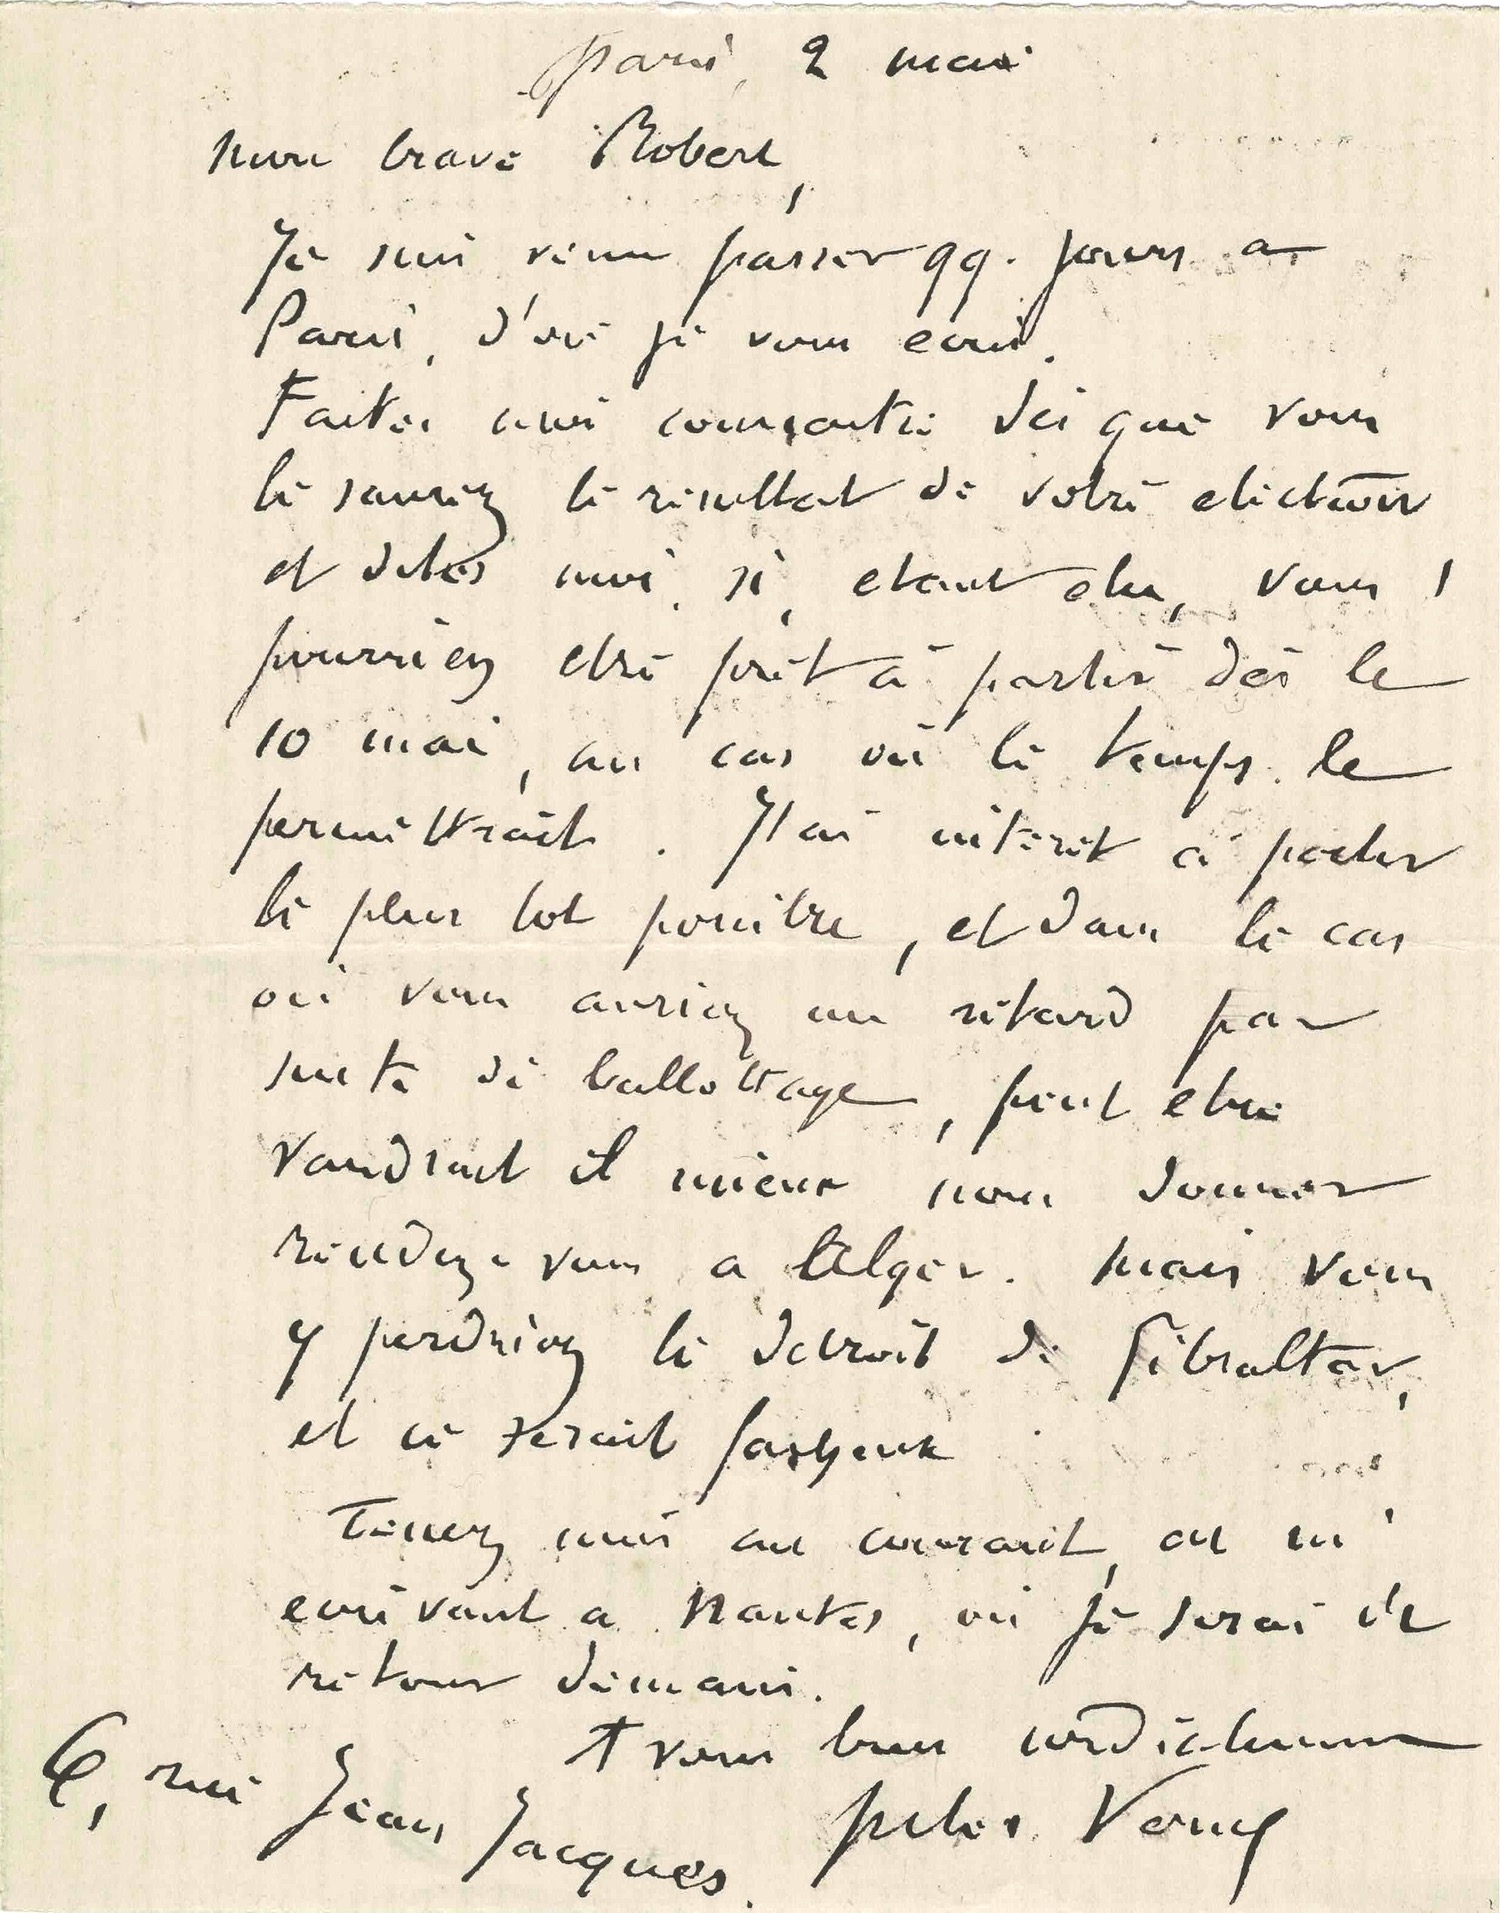 Paris, 2 mai
Mon brave Robert,
Je suis venu passer qq. jours a
Paris, d'où je vous ecris.
Faites moi connaitre dès que vous
le saurez le résultat de votre election
et dites moi, si, etant elu, vous
pourriez etre prêt à partir dès le
10 mai, au cas où le temps le
permettrait. J'ai intérêt à partir
le plus tot possible, et dans le cas
où vous auriez un retard par
suite de ballottage, peut etre
vaudrait il mieux nous donner
rendez-vous a Alger. Mais vous
y perdriez le detroit de Gibraltar,
et ce serait facheux
Tenez moi au courant, en m'
ecrivant a Nantes, où je serai de
retour demain.
A vous bien cordialement
Jules Verne
6, rue Jean Jacques.